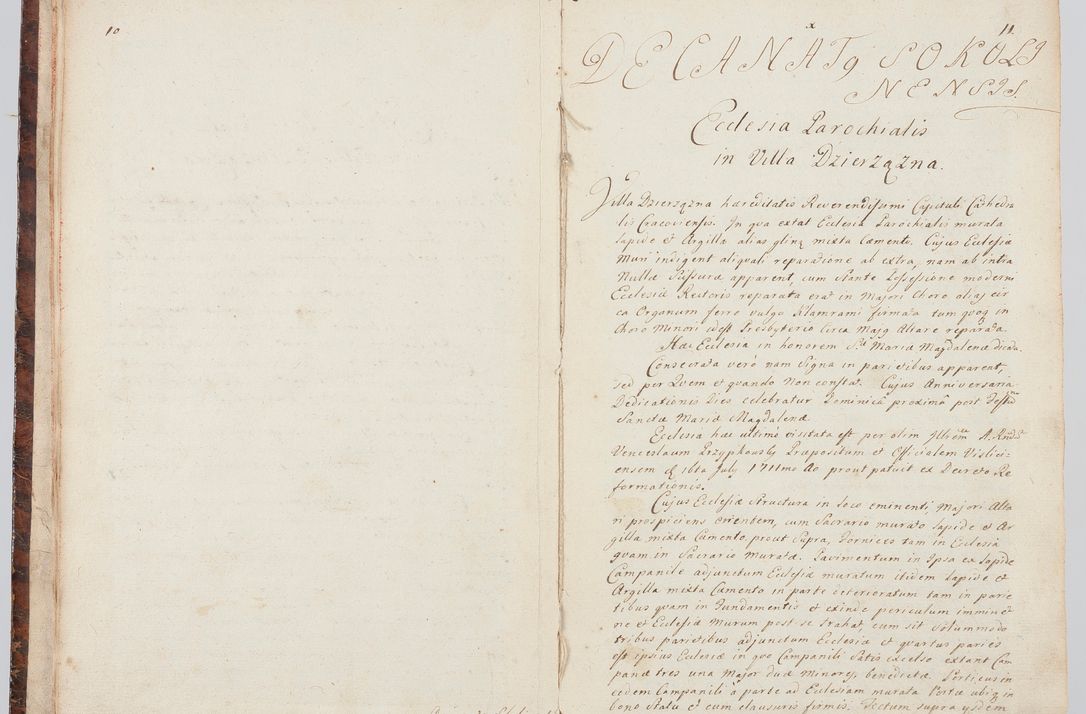 10
11.
DECANAT9 SOKOLI
NENSIS.
Ecclesia Parochialis
in Villa Dzierzązna.
Villa Dzierzązna hæreditatis Reverendissimi Capituli Cathedra
lis Cracoviensis. In qva extat Ecclesia Parochialis murata
lapide et Argilla alias gliną mixta Cæmento. Cujus Ecclesiæ
Muri indigent aliquali reparatione ab extra, nam ab intra
Nullæ Scissuræ apparent, cum Stante Possessione moderni
Ecclesiæ Rectoris reparata erat in Majori Choro alias cir
ca Organum ferro vulgo Klamrami firmata tum quoq in
Choro Minori idest Presbyterio Circa Majq Altare reparata.
Hæc Ecclesia in honorem Stæ Mariæ Magdalenæ dicata.
Consecrata verò nam Signa in parietibus apparent,
sed per Qvem et quando Non constat. Cujus Anniversaria
Dedicationis Dies celebratur Dominicâ proximâ post Festum
Sanctæ Mariæ Magdalenæ.
Ecclesia hæc ultimò visitata est per olim Illrem A. Rndum
Venceslaum Przyphowsky Præpositum et Officialem Vislici-
ensem 16ta July 1711mo Ao prout patuit ex Decreto Re
formationis.
Cujus Ecclesiæ Structura in loco eminenti, Majori Alta
ri prospiciens orientem, cum Sacrario murato lapide et Ar
gilla mixta Cæmento, prout Supra, Fornices tam in Ecclesia
qvam in Sacrario Muratæ. Pavimentum in Ipsa ex lapide
Campanile adjunctum Ecclesiæ muratum itidem lapide et
Argilla mixta Cæmento in parte deterioratum tam in parie
tibus qvam in Fundamentis et exinde periculum imminet
ne et Ecclesiæ Murum post se trahat, cum sit Solummodo
tribus parietibus adjunctum Ecclesiæ et quartus paries
est ipsius Ecclesiæ in qvo Campanili Satis excelso extant Cam
panæ tres una Major duæ Minores, benedictæ. Porticus in
eodem Campanili à parte ad Ecclesiam murata Portæ ubiq in
bono Statu et cum clausuris firmis. Tectum supra ysdem